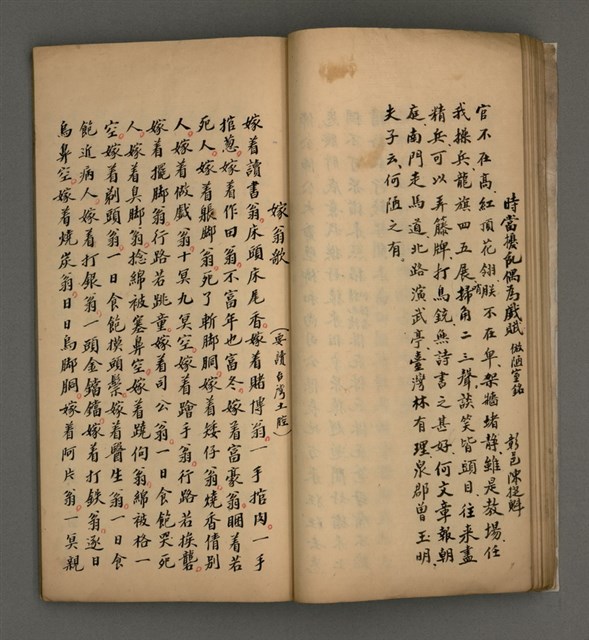 時當擾亂偶為戲賦 倣陋室銘 彰邑陳捷魁
官不在高紅頂花翎有朕不在卑架牆緒靜雖是教場任
我操兵龍旗四五展掃角二三聲談笑皆頭目往來盡
精兵可以弄籐牌打鳥銃無詩書之甚好何文章報朝
庭南門走馬道北路演武亭臺灣林有理泉郡曾玉明
夫子云何陋之有
嫁翁歌 (要讀台灣土腔)
嫁着讀書翁床頭床尾香嫁着賭博翁一手捾肉一手
捾蔥嫁着作田翁不富年也富冬嫁着富豪翁睏着若
死人嫁着賬脚翁死了斬脚胴嫁着矮仔翁燒香倩別
人嫁着做戲翁十冥九冥空嫁着躼手翁行路若挨礱
嫁着擺脚翁行路若跳童嫁着司公翁一日食飽哭死
人嫁着臭脚翁捻綿被塞鼻空嫁着蹺佝翁綿被格一
空嫁着剃頭翁一日食飽摸頭鬃嫁着醫生翁一日食
飽近病人嫁着打銀翁一頭金鐺鐺嫁着打鉄翁逐日
烏鼻空嫁着燒炭翁日日烏脚胴嫁着阿片翁一冥親